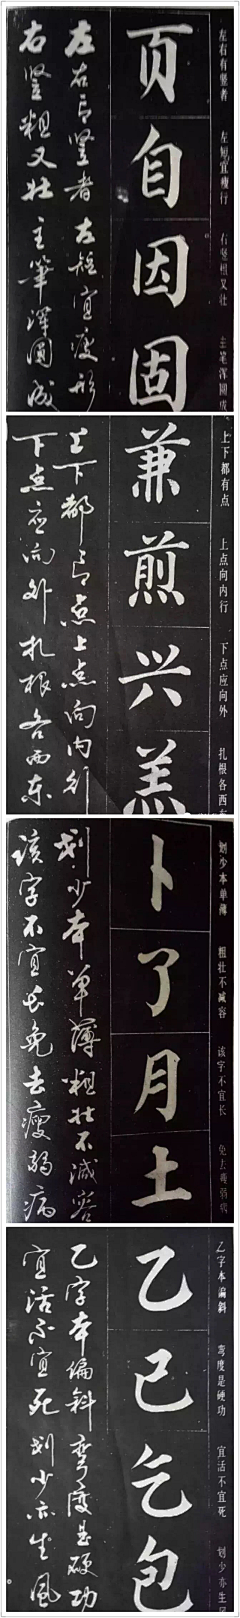 左右有竖者 左短宜瘦行 右竖粗又壮 主笔浑圆成
页自因固
左右有竖者 左短宜瘦形
右竖粗又壮 主筆浑圆成
上下都有点 上点向内行 下点应向外 扎根各西东
兼煎兴羔
上下都有点上点向内行
下点应向外扎根各西东
划少本单薄 粗壮不减容 该字不宜长 免去瘦弱病
卜了月土
划少本单薄粗壮不减容
该字不宜长免去瘦弱病
乙字本偏斜 弯度是硬功 宜活不宜死 划少亦生风
乙已乞包
乙字本偏斜弯度是硬功
宜活不宜死划少亦生风